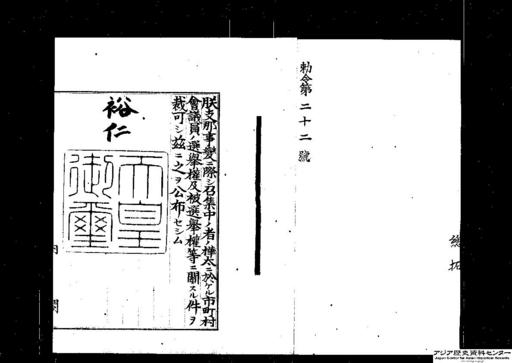 勅令第二十二號
朕支那事變ニ際シ召集中ノ者ノ樺太ニ於ケル市町村
會議員ノ選擧權及被選擧權等ニ關スル件ヲ
裁可シ茲ニ之ヲ公布セシム
裕仁
天皇御璽
内閣
アジア歴史資料センター
Japan Center for Asian Historical Records